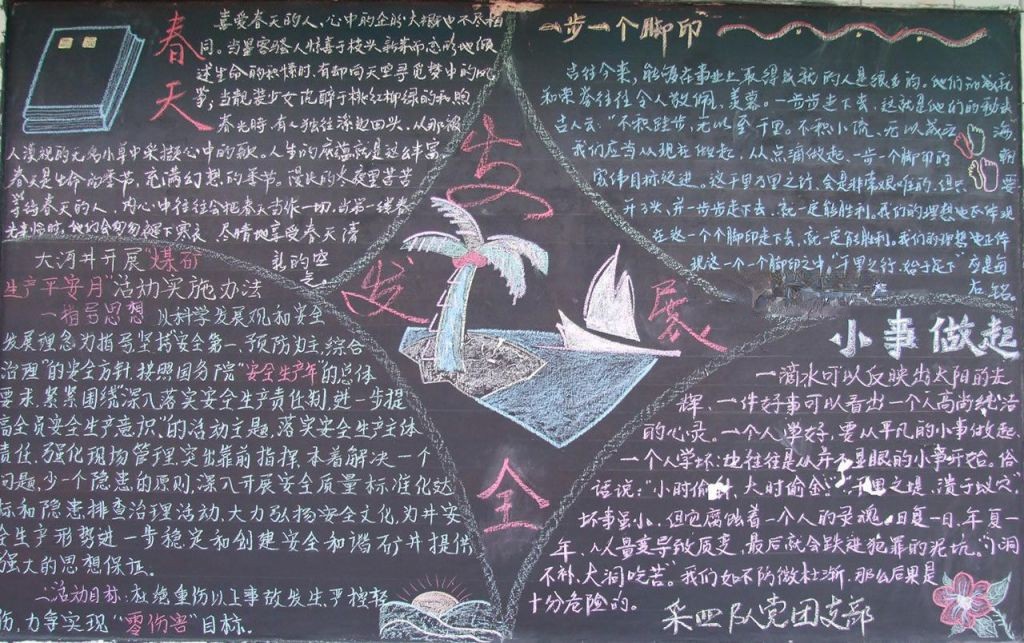 春天
喜爱春天的人,心中的企盼大概也不尽相
同。当星客骚人惊喜于枝头新芽
述生命的积懵时,有却向天空寻觅梦中的风
筝;当靓装少女沉醉于桃红柳绿的和煦
春光时,有人独往深处回头,从那被
人漠视的无名小草中采撷心中的歌。人生的底蕴就是这么丰富。
春天是生命的季节,充满幻想的季节。漫长的冬夜里苦苦
等待春天的人,内心中往往会把春天当作一切,当第一缕春
光来临时,他们会匆匆褪下寒衣,尽情地享受春天清
新的空
气。
一步一个脚印
古往今来,能够在事业上取得成就的人是很多的。他们的成就
和荣誉往往令人敬佩、羡慕。一步步走下去,这就是他们的秘诀
古人云:“不积跬步,无以至千里。不积小流,无以成江海
我们应当从现在做起,从点滴做起,一步一个脚印的朝
宏伟目标迈进。这千里万里之行,会是非常艰难的,但只要
开了头,并一步步走下去,就一定能胜利。我们的理想也正体现
在这一个个脚印走下去,就一定能胜利。我们的理想也正体
现这一个一个脚印之中。“千里之行,始于足下”应是每
右铭。
安
发
展
全
大河井开展煤矿
生产平安月”活动实施办法
一指导思想 以科学发展观和安全
发展理念为指导坚持“安全第一、预防为主,综合
治理”的安全方针,按照国务院“安全生产年”的总体
要求,紧紧围绕“深入落实安全生产责任制,进一步提
高全员安全生产意识”的活动主题,落实安全生产主体
责任,强化现场管理,突出靠前指挥,本着解决一个
问题,少一个隐患的原则,深入开展安全质量标准化达
标和隐患排查治理活动,大力弘扬安全文化,为井安
全生产形势进一步稳定和创建安全和谐矿井提供
强大的思想保证。
二活动目标:杜绝重伤以上事故发生,严控轻
伤,力争实现“零伤害”目标。
小事做起
一滴水可以反映出太阳的光
辉、一件好事可以看出一个人高尚纯洁
的心灵。一个人学好,要从平凡的小事做起、
一个人学坏:也往往是从并不显眼的小事开始。俗
话说:“小时偷针,大时偷金。”“千里之堤,溃于蚁穴”
坏事虽小,但它腐蚀着一个人的灵魂,日复一日,年复一
年、从量变导致质变,最后就会跌进犯罪的泥坑。“小洞
不补,大洞吃苦”。我们如不防微杜渐,那么后果是
十分危险的。
采四队党团支部